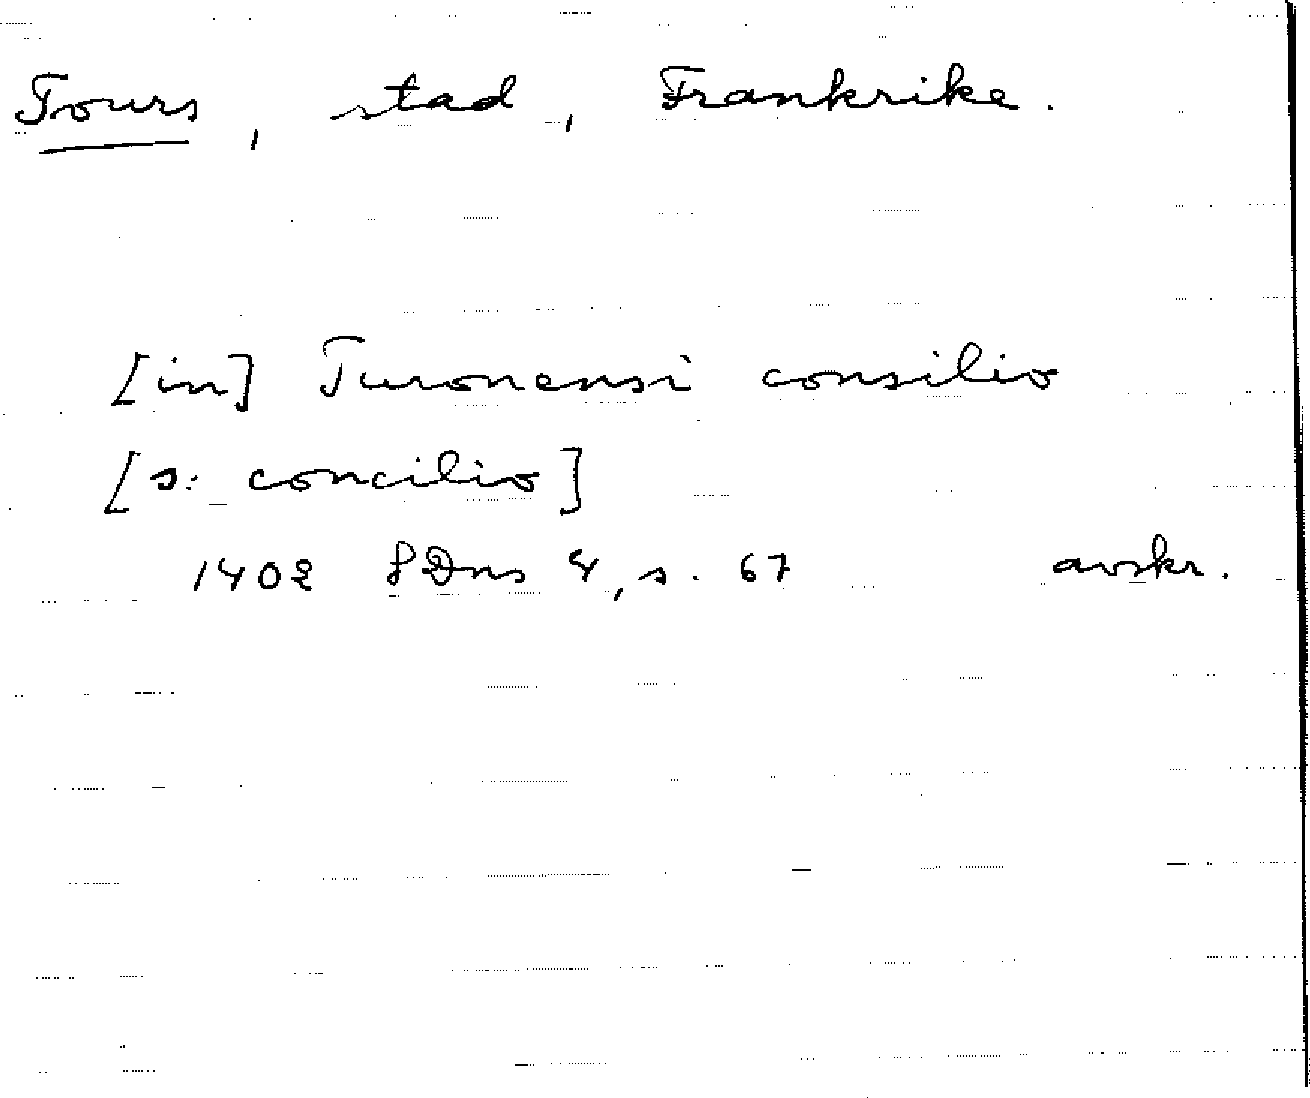 Tours, stad, Frankrike.
[in] Turonensi consilio
[ɔ: concilio]
1402 SDns 4, s. 67 avskr.